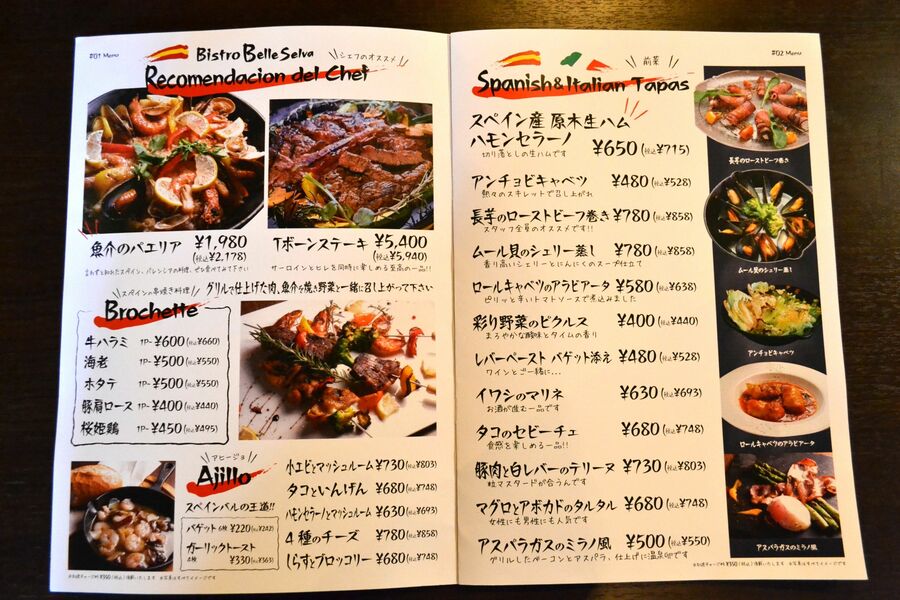 #01 Menu
Bistro Belle Selva
シェフのオススメ
Recomendacion del Chef
魚介のパエリア ¥1,980
(税込¥2,178)
言わずと知れたスペイン、バレンシアの料理、ぜひ食べてみて下さい
Tボーンステーキ ¥5,400
(¥5,940)
サーロインとヒレを同時に楽しめる至高の一品!!
スペインの串焼き料理
グリルで仕上げた肉、魚介を焼き野菜と一緒に召し上がって下さい
Brochette
牛ハラミ 1P- ¥600(税込¥660)
海老 1P- ¥500(税込¥550)
ホタテ 1P- ¥500(税込¥550)
豚肩ロース 1P- ¥400(税込¥440)
桜姫鶏 1P- ¥450(税込¥495)
アヒージョ
Ajillo
スペインバルの王道!!
バゲット 6枚 ¥220(税込¥242)
ガーリックトースト
4枚 ¥330(税込¥363)
小エビとマッシュルーム ¥730(税込¥803)
タコといんげん ¥680(税込¥748)
ハモンセラーノとマッシュルーム ¥630(税込¥693)
4種のチーズ ¥780(税込¥858)
しらすとブロッコリー ¥680(税込¥748)
#02 Menu
前菜
Spanish&Italian Tapas
スペイン産 原木生ハム
ハモンセラーノ ¥650(税込¥715)
切り落としの生ハムです
アンチョビキャベツ ¥480(税込¥528)
熱々のスキレットで召し上がれ
長芋のローストビーフ巻き ¥780(税込¥858)
スタッフ全員のオススメです!!
ムール貝のシェリー蒸し ¥780(税込¥858)
香り高いシェリーとにんにくのスープ仕立て
ロールキャベツのアラビアータ ¥580(税込¥638)
ピリッと辛いトマトソースで煮込みました
彩り野菜のピクルス ¥400(税込¥440)
まろやかな酸味とタイムの香り
レバーペースト バゲット添え ¥480(税込¥528)
ワインとご一緒に…
イワシのマリネ ¥630(税込¥693)
お酒が進む一品です
タコのセビーチェ ¥680(税込¥748)
食感を楽しめる一品!!
豚肉と白レバーのテリーヌ ¥730(税込¥803)
粒マスタードが合うんです
マグロとアボカドのタルタル ¥680(税込¥748)
女性にも男性にも人気です
アスパラガスのミラノ風 ¥500(税込¥550)
グリルしたベーコンとアスパラ、仕上げに温泉卵です
長芋のローストビーフ巻き
ムール貝のシェリー蒸し
アンチョビキャベツ
ロールキャベツのアラビアータ
アスパラガスのミラノ風